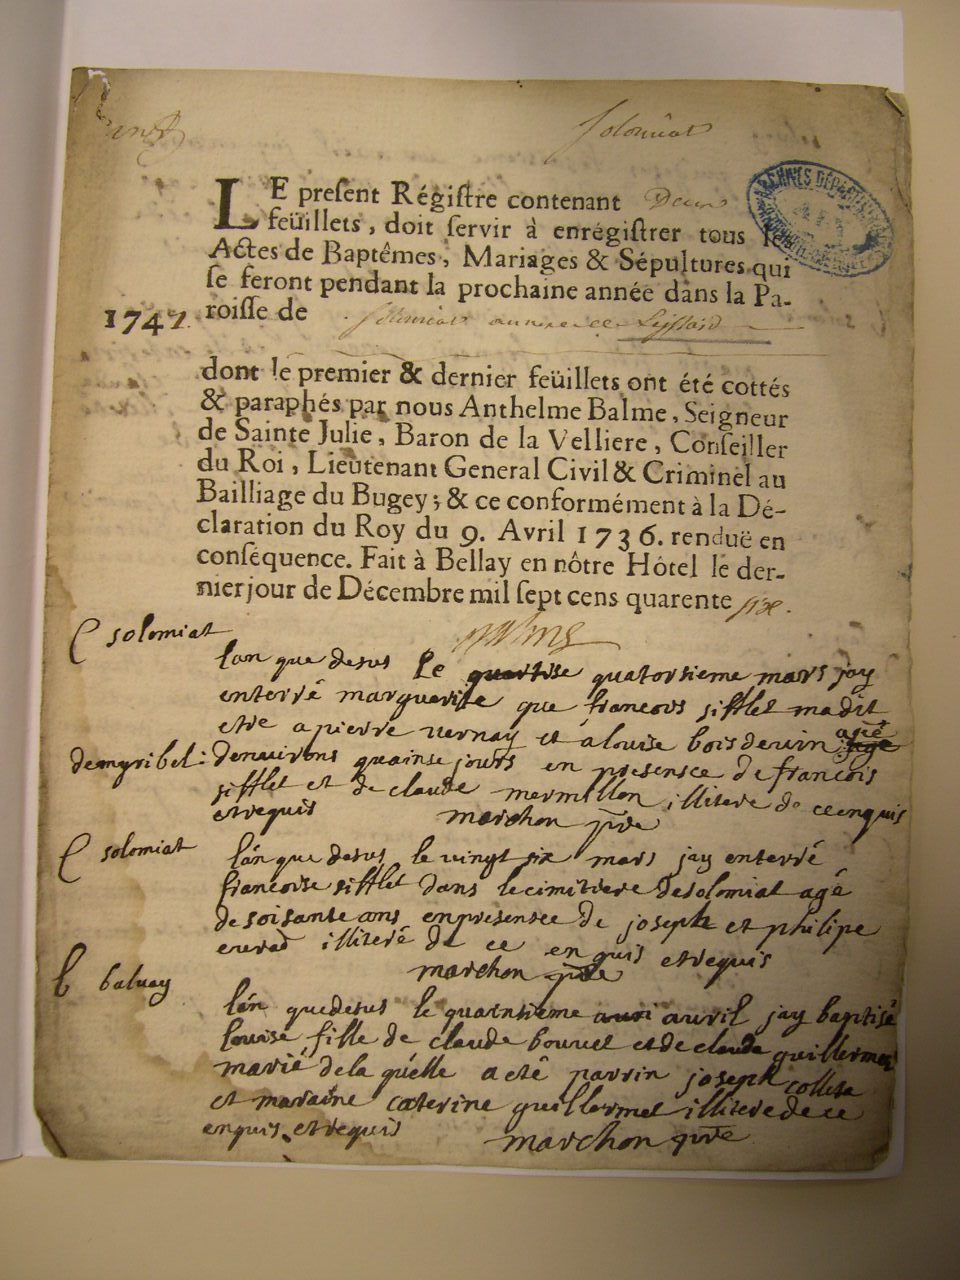 Solomiat
LE preſent Régiſtre contenant Deux
feüillets, doit ſervir à enrégiſtrer tous les
Actes de Baptêmes, Mariages & Sépultures qui
ſe feront pendant la prochaine année dans la Pa-
1747. roiſſe de Solomiat annexe de Leyssard
dont le premier & dernier feüillets ont été cottés
& paraphés par nous Anthelme Balme, Seigneur
de Sainte Julie, Baron de la Velliere, Conſeiller
du Roi, Lieutenant General Civil & Criminel au
Bailliage du Bugey; & ce conformément à la Dé-
claration du Roy du 9. Avril 1736. renduë en
conſéquence. Fait à Bellay en nôtre Hôtel le der-
nier jour de Décembre mil ſept cens quarente six.
Balme
solomiat
lan que desus Le quatorsieme mars jay
enterré marguerite que francois sifflet ma dit
etre a pierre vernay et a louise boisdevin agée
de myribel: denvirons quainse jours en presensce de francois
sifflet et de claude mermillon illitere de ce enquis
et requis marchon ptre
solomiat lán que desus le vingt six mars jay enterré
francoise sifflet dans le cimitiere de solomiat agé
de soisante ans en presensce de joseph et philipe
evrad illiteré de ce enquis et requis
marchon ptre
b balvay
lán que desus le quainsieme avril jay baptisé
louise fille de claude bouvet et de claude guillermet
marié de la quélle a eté parrin joseph collet
et maraine caterine guillermet illitere de ce
enquis et requis marchon ptre